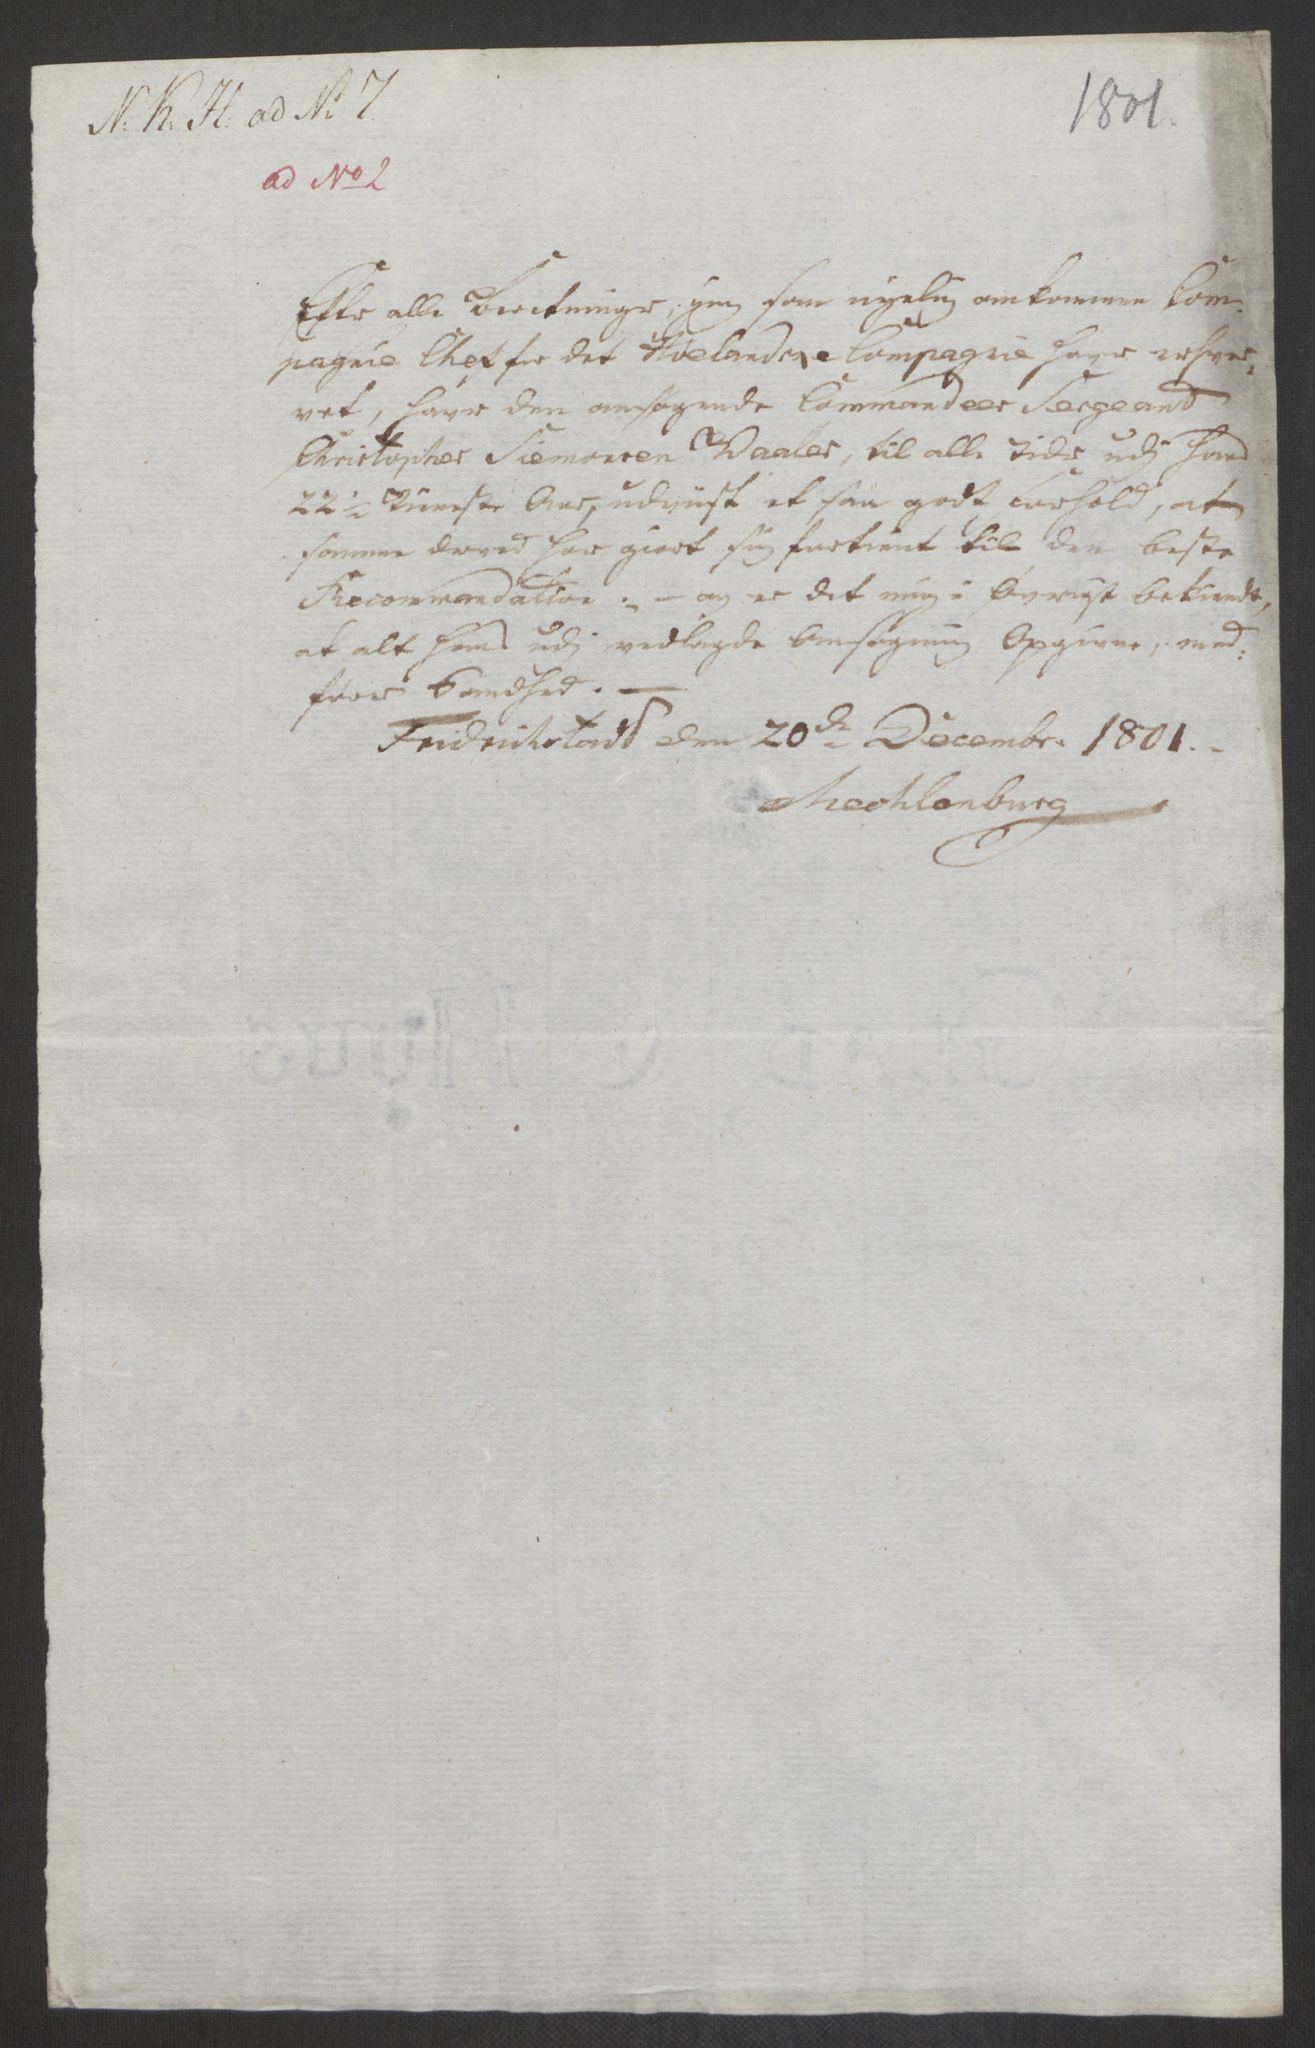 N. K. H. ad No 7
1801.
ad No 2
Efter alle Beretninger, jeg som nyelig ankommen Com
pagnie Chef for det Hvelandske Compagnie haver erhver,
vet, haver den ansøgende Commandeer Sergeand
Christopher Siemonsen Waaler, til alle Tider udj hans
22 1/2 Tieneste Aar, udviist et saa godt Forhold, at
samme derved har giort sig fortient til den beste
Recommendation. - og er det mig i Øvrigt bekiendt,
at alt hans udj vedlagde Ansøgning Opgivne, med:
fører Sandhed. —
Fridrichstad den 20de Decembr. 1801.
Mechlenburg